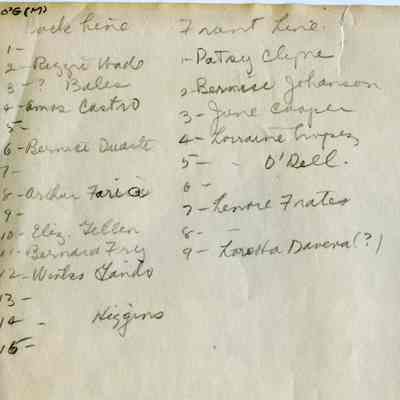 Back Line
1-
2- Reggie Wade
3- ? Bales
4- Amos Castro
5-
6- Bernice Duarte
7-
8- Arthur Farias
9-
10- Eliz. Fellen
11- Bernard Fry
12- Lando
13-
14- Higgins
15-
Front Line:
1- Patsy Clyne
2- Bernice Johanson
3- June Cooper
4- Lorraine
5- - O'Dell.
6-
7- Lenore Frates
8- -
9- Loretta Davera(?)